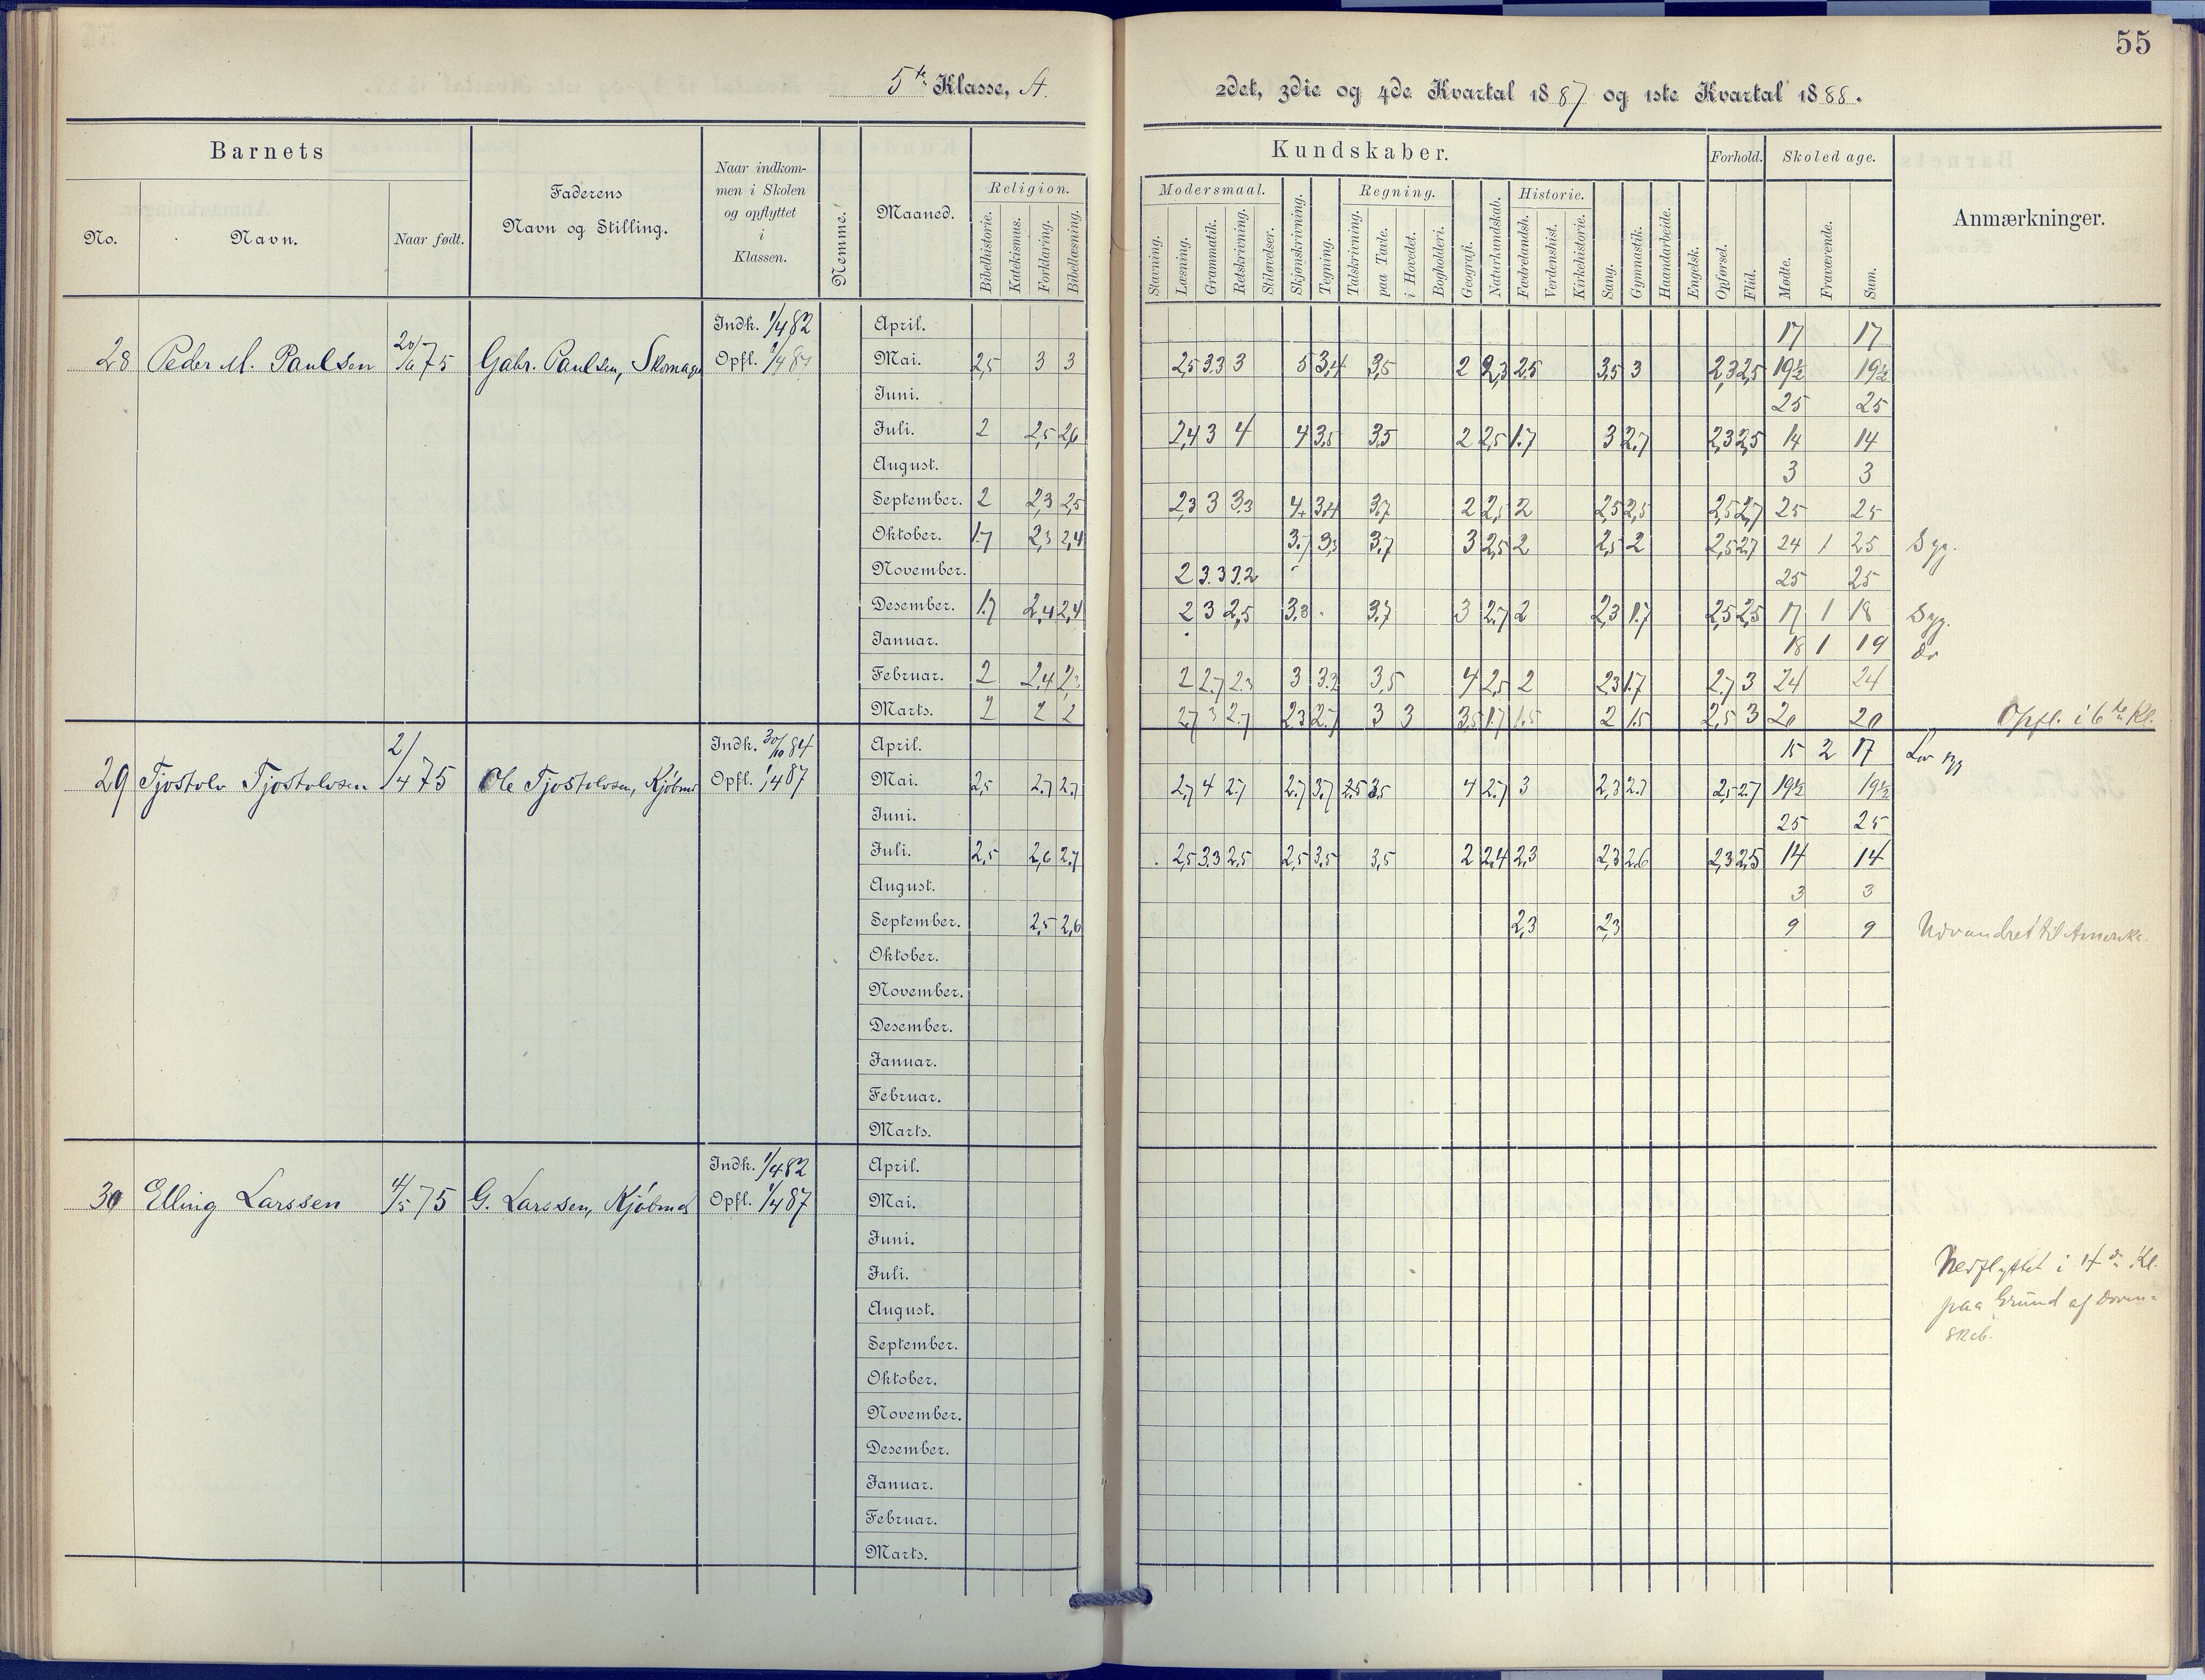 55
5te Klasse, A.
2det, 3die og 4de Kvartal 1887 og 1ste Kvartal 1888.
Barnets
No.
Navn.
Naar født.
Faderens
Navn og Stilling.
Naar indkom-
men i Skolen
og opflyttet
i
Klassen.
Nemme.
Maaned.
Religion.
Bibelhistorie.
Katekismus.
Forklaring.
Bibellæsning.
Kundskaber.
Modersmaal.
Stavning.
Læsning.
Grammatik.
Retskrivning.
Stiløvelser.
Skjønskrivning.
Tegning.
Regning.
Talskrivning.
paa Tavle.
i Hovedet.
Bogholderi.
Geografi.
Naturkundskab.
Historie.
Fædrelandsh.
Verdenshist.
Kirkehistorie.
Sang.
Gymnastik.
Haandarbeide.
Engelsk.
Forhold.
Opførsel.
Flid.
Skoledage.
Mødte.
Fraværende.
Sum.
Anmærkninger.
28 Peder M. Paulsen 75 Gabr. Paulsen, Skomager
Indk. 1/4 82
Opfl. 1/4 87
April. 17 17
Mai. 2,5 3 3 2,5 3.3 3 5 3,4 3,5 2 2,3 2.5 3,5 3 2,3 2,5 19½ 19½
Juni. 25 25
Juli. 2 2,5 2,6 2,4 3 4 4 3,5 3,5 2 2,5 1.7 3 2.7 2,3 2,5 14 14
August. 3 3
September. 2 2,3 2,5 2,3 3 3.3 4 3,4 3,7 2 2,5 2 2,5 2,5 2,5 2,7 25 25
Oktober. 1.7 2,3 2,4 3.7 3,3 3,7 3 2,5 2 2,5 2 2,5 2.7 24 1 25 Syg.
November. 2 3.3 3.2 25 25
Desember. 1.7 2,4 2,4 2 3 2,5 3.3 3,7 3 2.7 2 2,3 1.7 2,5 2,5 17 1 18 Syg.
Januar. 18 1 19 do
Februar. 2 2,4 2 2.7 2.3 3 3.2 3,5 4 2,5 2 2,3 1.7 2.7 3 24 24
Marts. 2 2 2 2.7 3 2.7 2.3 2.7 3 3 3,5 1.7 1.5 2 1.5 2,5 3 20 20 Opfl. i 6te Kl.
29 Tjostolv Tjostolvsen 2/4 75 Ole Tjostolvsen, Kjøbmd
Indk. 30/10 84
Opfl. 1/4 87
April. 15 2 17
Mai. 2,5 2.7 2.7 2,7 4 2.7 2.7 3,7 2.5 3.5 4 2.7 3 2,3 2.7 2,5 2.7 19½ 19½
Juni. 25 25
Juli. 2,5 2,6 2.7 2,5 3.3 2,5 2,5 3,5 3,5 2 2,4 2,3 2,3 2.6 2,3 2,5 14 14
August. 3 3
September. 2,5 2,6 2,3 2,3 9 9 Udvandret til Amerika.
Oktober.
November.
Desember.
Januar.
Februar.
Marts.
30 Elling Larssen 4/5 75 G. Larssen, Kjøbmd
Indk. 1/4 82
Opfl. 1/4 87
April.
Mai.
Juni.
Juli.
August.
September.
Oktober.
November.
Desember.
Januar.
Februar.
Marts.
Nedflyttet i 4de Kl.
paa Grund af Doven-
skab.